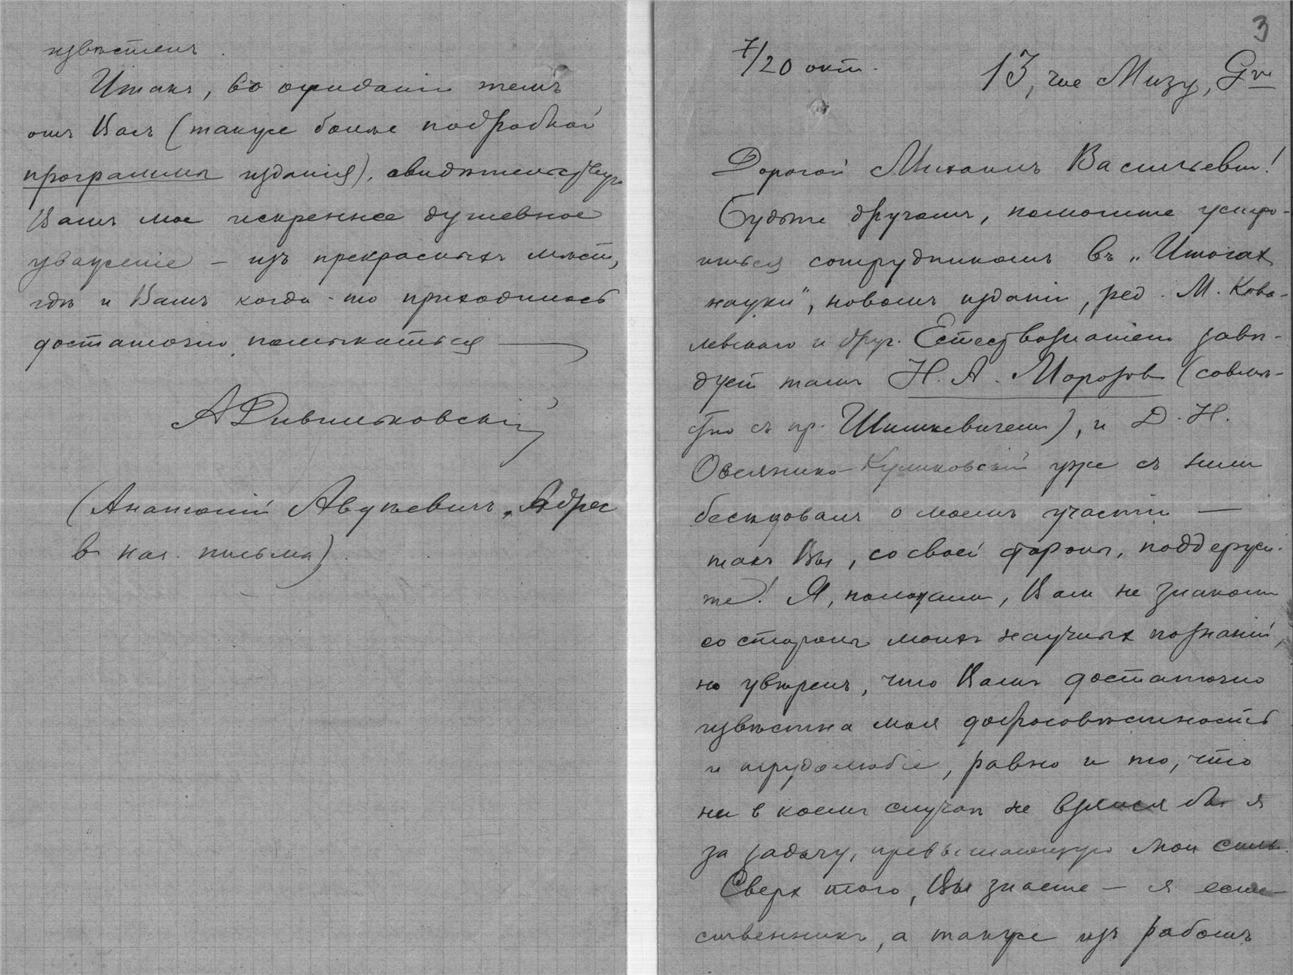 извѣстенъ.
Итакъ, въ ожиданіи темъ
отъ Васъ (также болѣе подробной
программы изданія), свидѣтельствую
Вамъ мое искреннее душевное
уваженіе — изъ прекрасныхъ мѣстъ,
гдѣ и Вамъ когда-то приходилось
достаточно помыкаться —
АДивильковскій
(Анатолій Авдѣевичъ. Адрес
в нач. письма)
3
7/20 окт.
13, rue Мизу, Gve
Дорогой Михаилъ Васильевич!
Будьте другомъ, помогите устро-
иться сотрудникомъ въ „Итогах
науки", новомъ изданіи, ред. М. Кова-
левскаго и друг. Естествознаніем завѣ-
дует тамъ Н. А. Морозовъ (совмѣ-
стно съ пр. Шимкевичемъ), и Д. Н.
Овсянико-Куликовскій уже съ ними
бесѣдовалъ о моемъ участіи —
такъ Вы, со своей стороны, поддержи-
те! Я, положимъ, Вам не знакомъ
со стороны моихъ научных познаній,
но увѣренъ, что Вамъ достаточно
извѣстна моя добросовѣстность
и трудолюбіе, равно и то, что
ни в коемъ случаѣ не взялся бы я
за задачу, превышающую мои силы.
Сверх того, Вы знаете — я есте-
ственникъ, а также изъ работъ